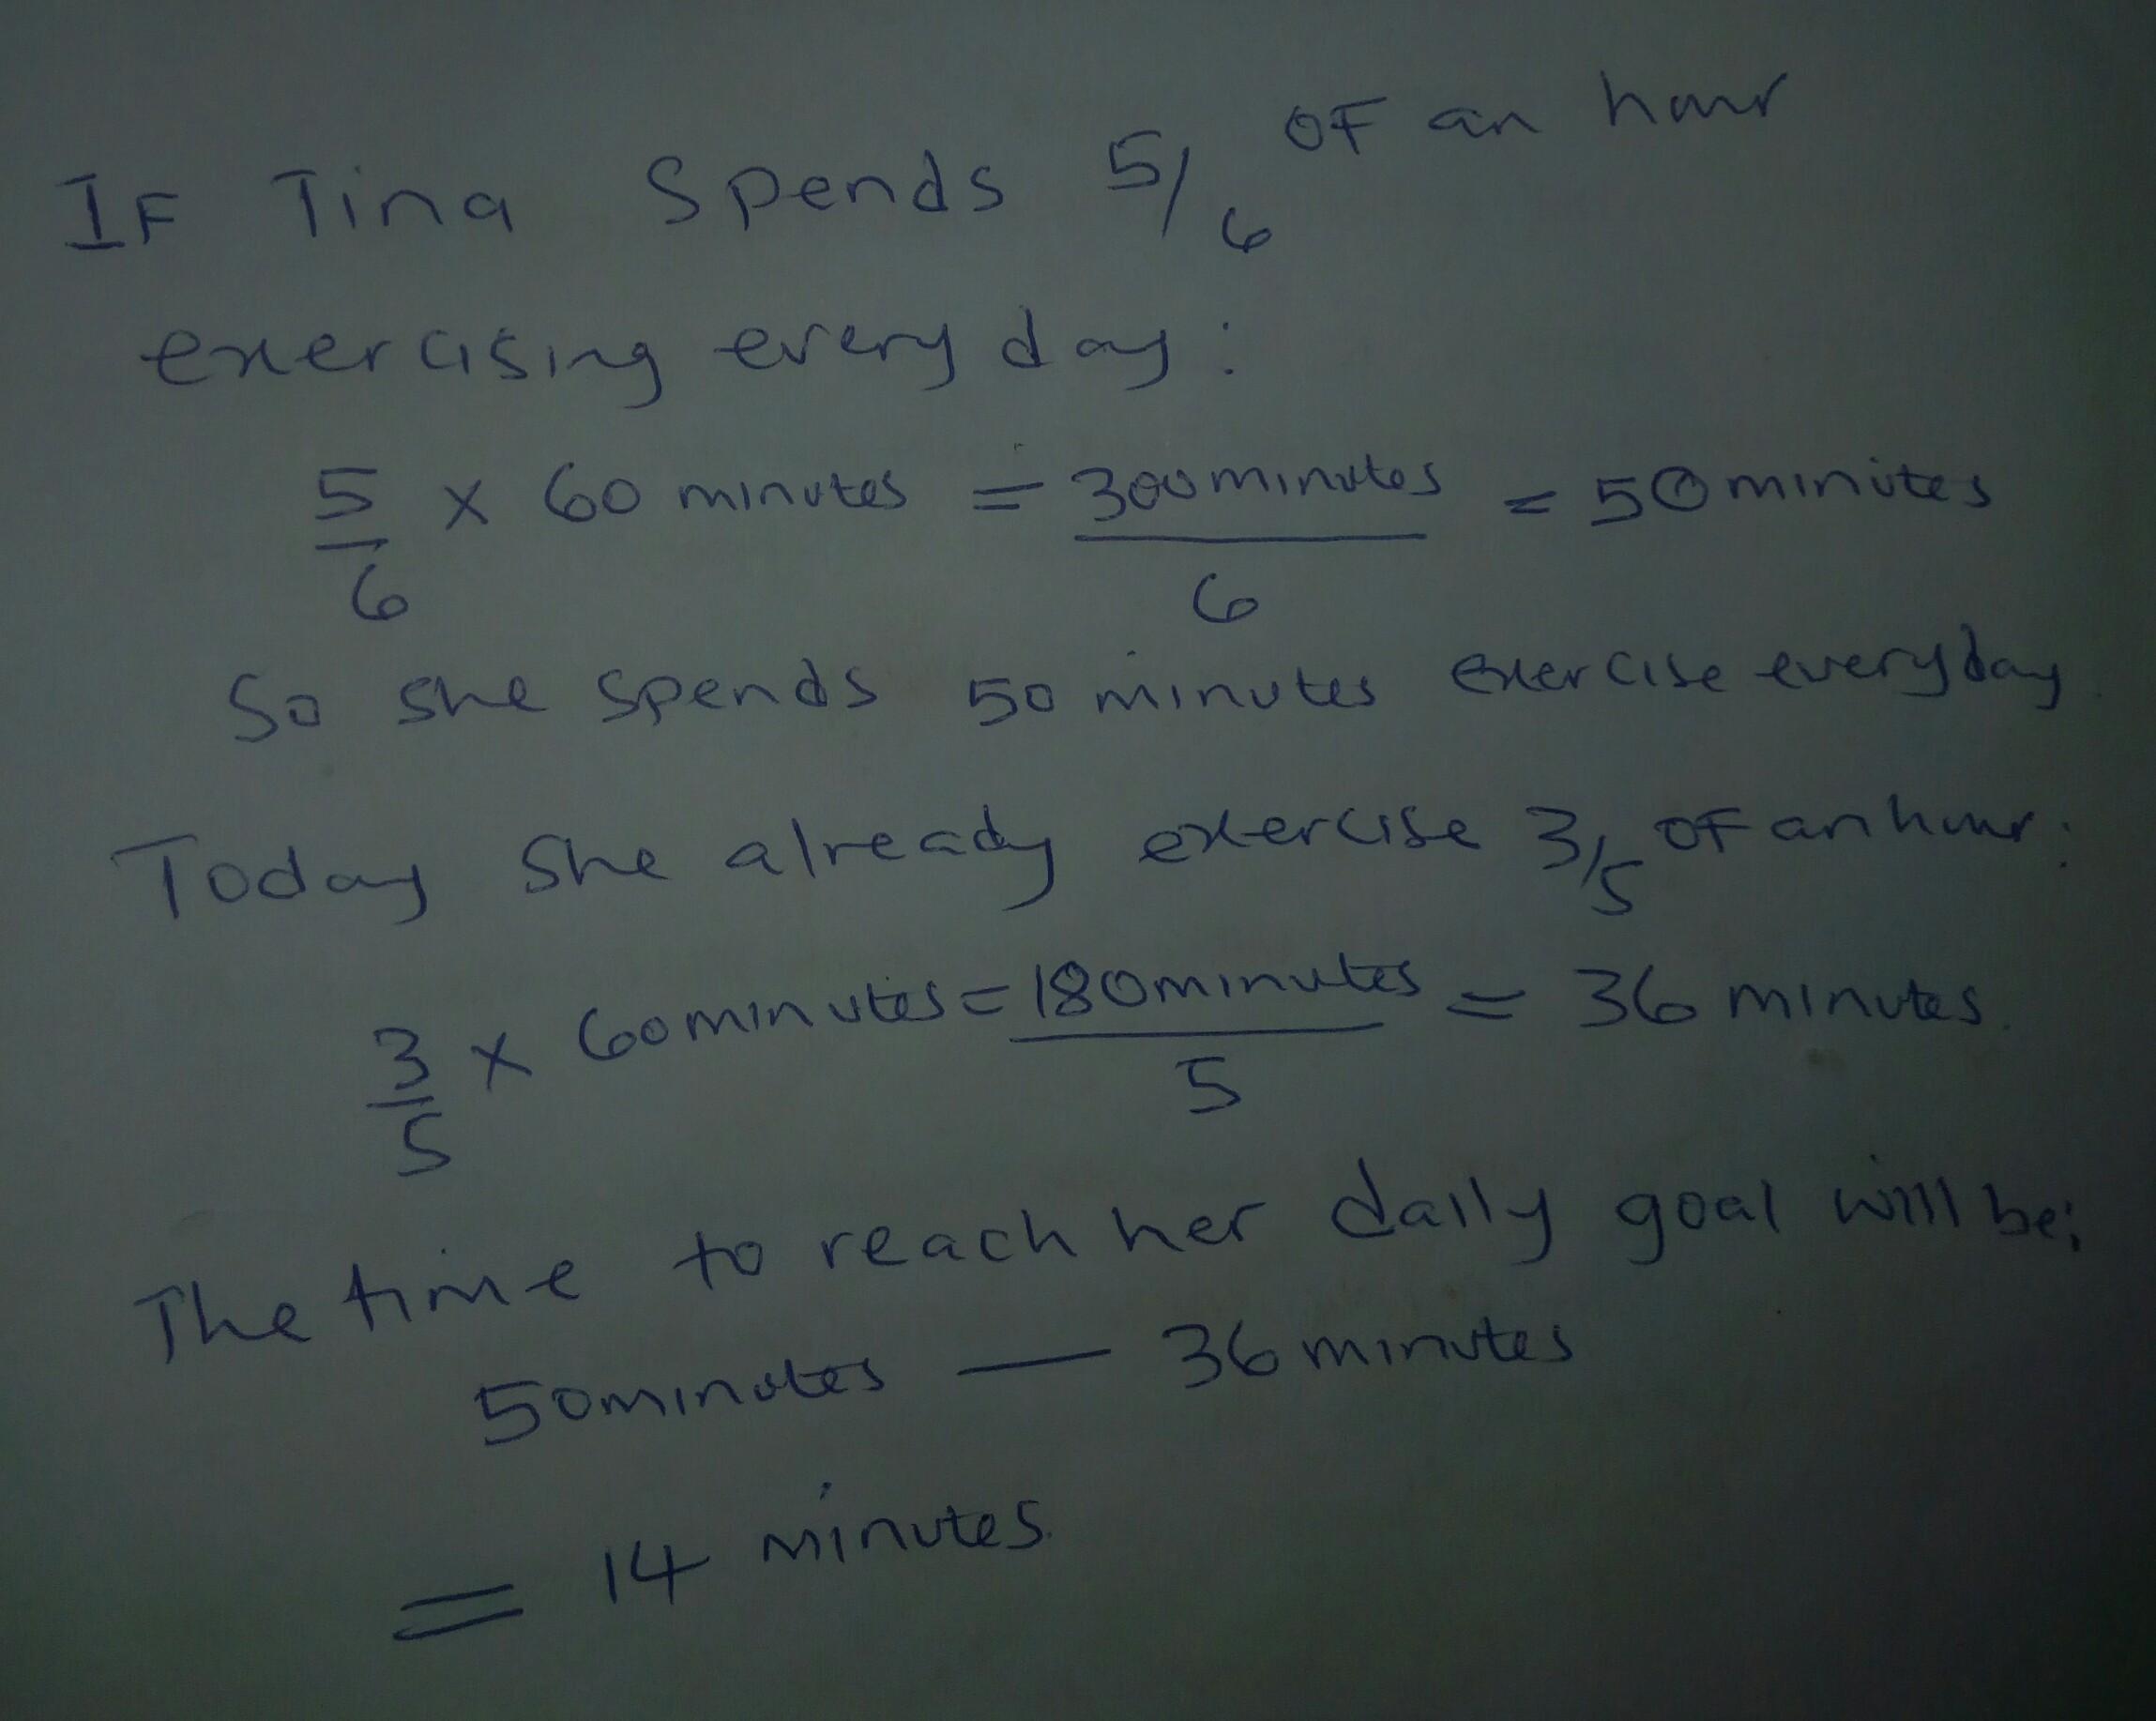 IF Tina Spends 5/6 OF an hour
exercising every day:
5/6 x 60 minutes = 300 minutes/6 = 50 minutes
So she spends 50 minutes exercise everyday
Today She already exercise 3/5 OF an hour:
3/5 x 60 minutes = 180 minutes/5 = 36 minutes.
The time to reach her daily goal will be;
50 minutes — 36 minutes
= 14 minutes.